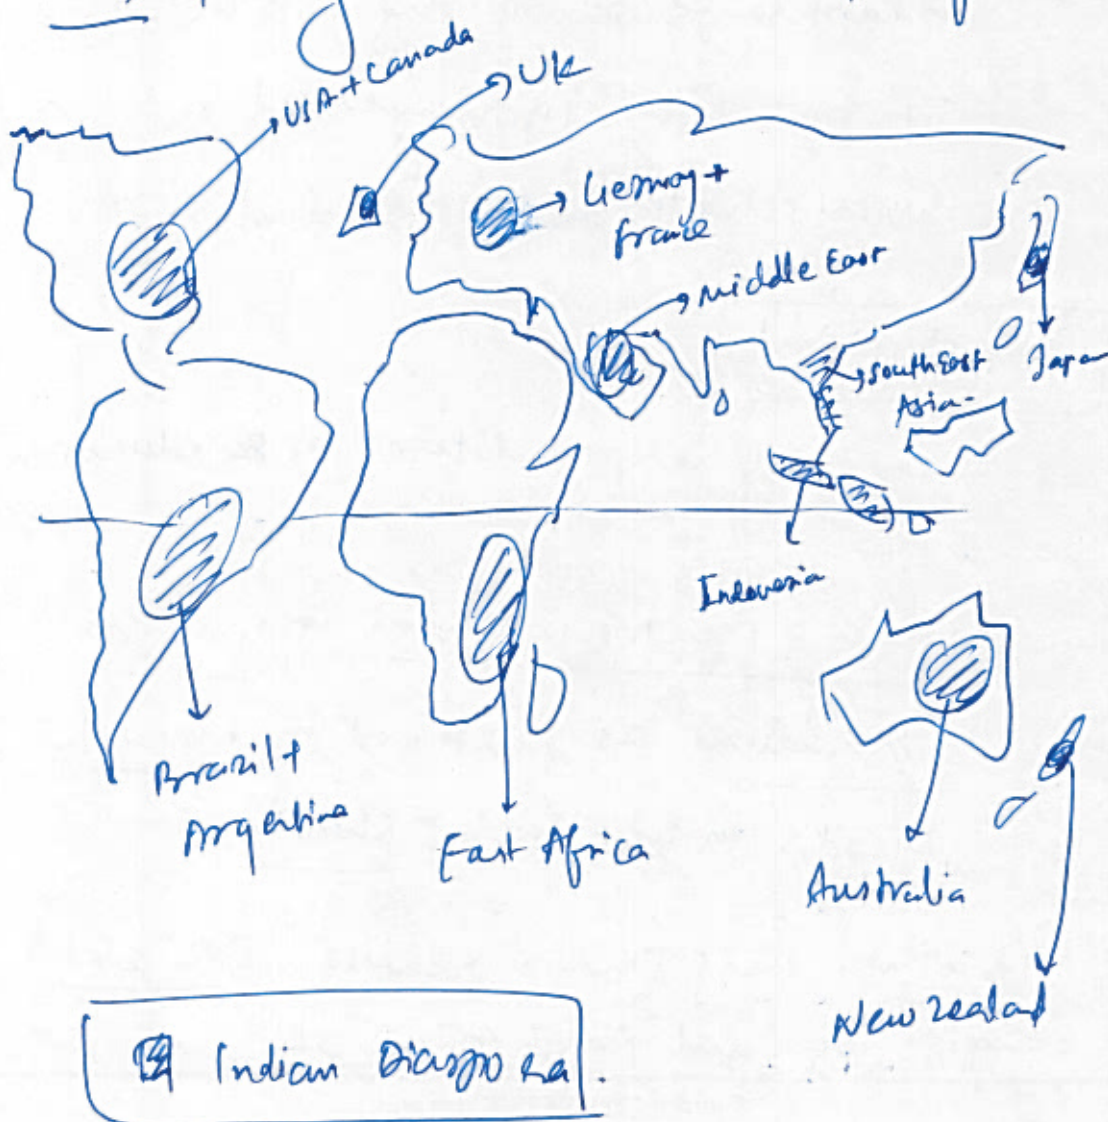 USA + Canada
UK
Germany +
France
Middle East
South East
Asia -
Japan
Indonesia
Brazil +
Argentina
East Africa
Australia
New Zealand
Indian Diaspora.